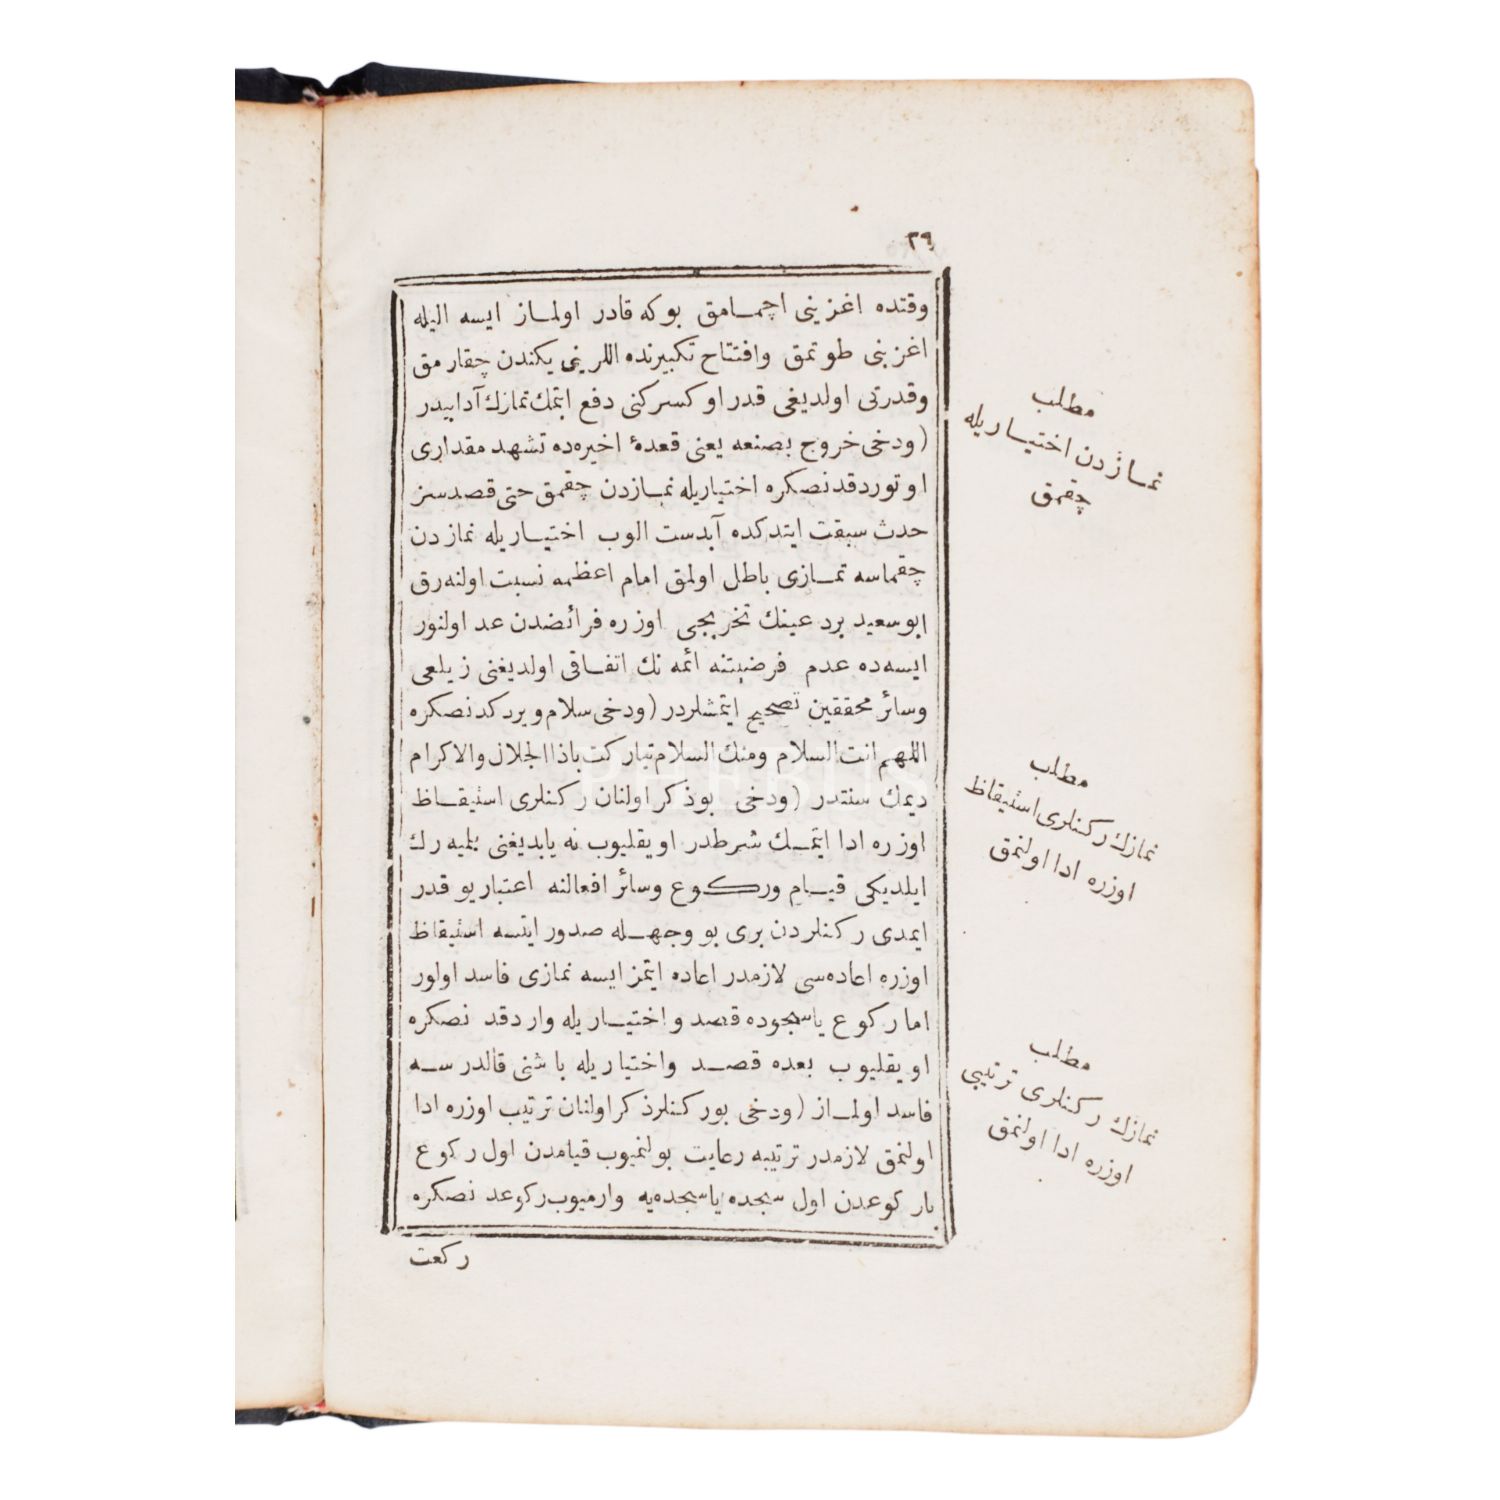 ٣٩
وقتده اغزینی اچمامق بوكه قادر اولماز ایسه الیله
اغزینی طوتمق وافتتاح تكبیرنده اللرینی یكندن چقارمق
وقدرتی اولدیغی قدر اوكسركنی دفع ایتمك نمازك آدابیدر
(ودخی خروج بصنعه یعنی قعدۀ اخیره‌ده تشهد مقداری
اوتوردقدنصكره اختیاریله نمازدن چقمق حتی قصدسز
حدث سبقت ایتدكده آبدست الوب اختیاریله نمازدن
چقماسه نمازی باطل اولمق امام اعظمه نسبت اولنه‌رق
ابوسعید بردعینك تخریجی اوزره فرائضدن عد اولنور
ایسه‌ده عدم فرضیتنه ائمه نك اتفاقی اولدیغنی زیلعی
وسائر محققین تصحیح ایتمشلردر (ودخی سلام ویردكدنصكره
اللهم انت السلام ومنك السلام تباركت یاذا الجلال والاكرام
دیمك سنتدر (ودخی بوذكر اولنان ركنلری استیقاظ
اوزره ادا ایتمك شرطدر اویقلیوب نه یاپدیغنی بلمیه‌رك
ایلدیكی قیام وركوع وسائر افعالنه اعتباریوقدر
ایمدی ركنلردن بری بو وجهله صدور ایتسه استیقاظ
اوزره اعاده‌سی لازمدر اعاده ایتمز ایسه نمازی فاسد اولور
اما ركوع یاسجوده قصد واختیاریله واردقدنصكره
اویقلیوب بعده قصد واختیاریله باشنی قالدرسه
فاسد اولماز (ودخی بوركنلرذكر اولنان ترتیب اوزره ادا
اولنمق لازمدر ترتیبه رعایت بولنمیوب قیامدن اول ركوع
یاركوعدن اول سجده یاسجده‌یه وارمیوب ركوعدنصكره
ركعت
مطلب
نمازدن اختیاریله
چقمق
مطلب
نمازك ركنلری استیقاظ
اوزره ادا اولنمق
مطلب
نمازك ركنلری ترتیبی
اوزره ادا اولنمق
PHEBUS